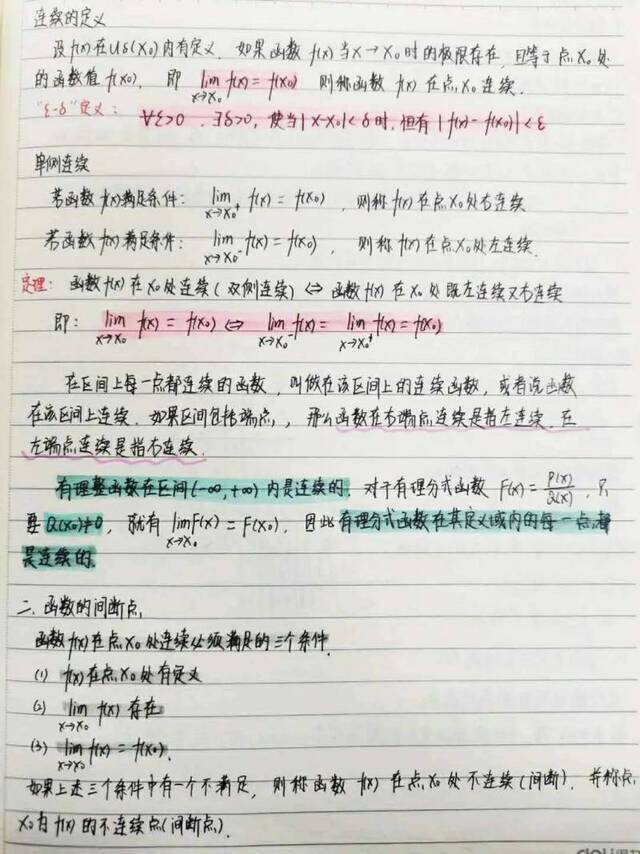 连续的定义
设f(x)在Uδ(x₀)内有定义，如果函数 f(x)当x→x₀时的极限存在，且等于点x₀处
的函数值f(x₀)，即 lim_{x→x₀} f(x)=f(x₀) 则称函数 f(x) 在点x₀连续.
"ε-δ"定义： ∀ε>0，∃δ>0，使当|x-x₀|<δ时，恒有|f(x)-f(x₀)|<ε
单侧连续
若函数f(x)满足条件： lim_{x→x₀⁺} f(x)=f(x₀)，则称f(x)在点x₀处右连续
若函数f(x)满足条件： lim_{x→x₀⁻} f(x)=f(x₀)，则称f(x)在点x₀处左连续.
定理：函数f(x)在x₀处连续(双侧连续)⇔函数f(x)在x₀处既左连续又右连续
即： lim_{x→x₀} f(x)=f(x₀)⇔ lim_{x→x₀⁻} f(x)= lim_{x→x₀⁺} f(x)=f(x₀)
在区间上每一点都连续的函数，叫做在该区间上的连续函数，或者说函数
在该区间上连续.如果区间包括端点，，那么函数在右端点连续是指左连续.在
左端点连续是指右连续.
有理整函数在区间(-∞,+∞)内是连续的.对于有理分式函数 F(x)=P(x)/Q(x)，只
要Q(x₀)≠0，就有 lim_{x→x₀} F(x)=F(x₀)，因此有理分式函数在其定义域内的每一点都
是连续的.
二、函数的间断点
函数f(x)在点x₀处连续必须满足的三个条件
(1) f(x)在点x₀处有定义
(2) lim_{x→x₀} f(x)存在
(3) lim_{x→x₀} f(x)=f(x₀).
如果上述三个条件中有一个不满足，则称函数 f(x)在点x₀处不连续(间断).并称点
x₀为f(x)的不连续点(间断点).